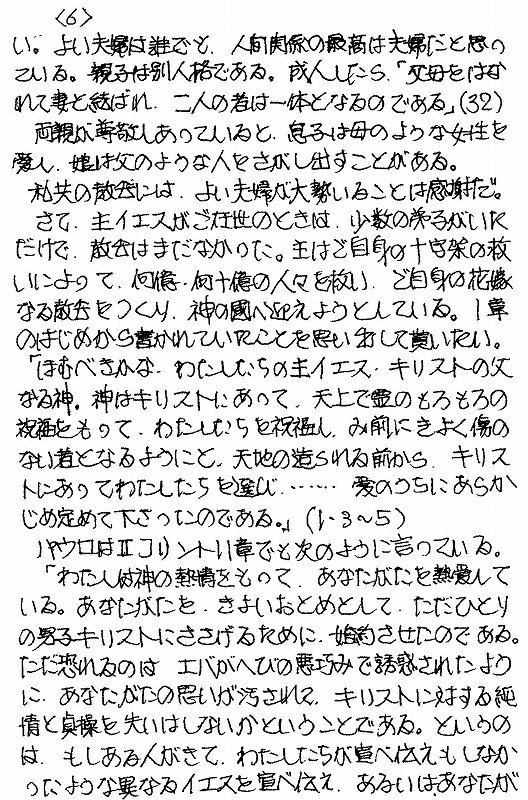 〈6〉
い。よい夫婦は誰でも、人間関係の最高は夫婦だと思っ
ている。親子は別人格である。成人したら、「父母をはな
れて妻と結ばれ、二人の者は一体となるのである」(32)
両親が尊敬しあっていると、息子は母のような女性を
愛し、娘は父のような人をさがし出すことがある。
私共の教会には、よい夫婦が大勢いることは感謝だ。
さて、主イエスがご在世のときは、少数の弟子がいた
だけで、教会はまだなかった。主はご自身の十字架の救
いによって、何億・何十億の人々を救い、ご自身の花嫁
なる教会をつくり、神の國へ迎えようとしている。1章
のはじめから書かれていたことを思い出して貰いたい。
「ほむべきかな、わたしたちの主イエス・キリストの父
なる神。神はキリストにあって、天上で霊のもろもろの
祝福をもって、わたしたちを祝福し、み前にきよく傷の
ない者となるようにと、天地の造られる前から、キリス
トにあってわたしたちを選び、…… 愛のうちにあらか
じめ定めて下さったのである。」(1・3〜5)
パウロはⅡコリント11章でも次のように言っている。
「わたしは神の熱情をもって、あなたがたを熱愛して
いる。あなたがたを、きよいおとめとして、ただひとり
の男子キリストにささげるために、婚約させたのである。
ただ恐れるのは エバがへびの悪巧みで誘惑されたよう
に、あなたがたの思いが汚されて、キリストに対する純
情と貞操を失いはしないかということである。というの
は、もしある人がきて、わたしたちが宣べ伝えもしなか
ったような異なるイエスを宣べ伝え、あるいはあなたが